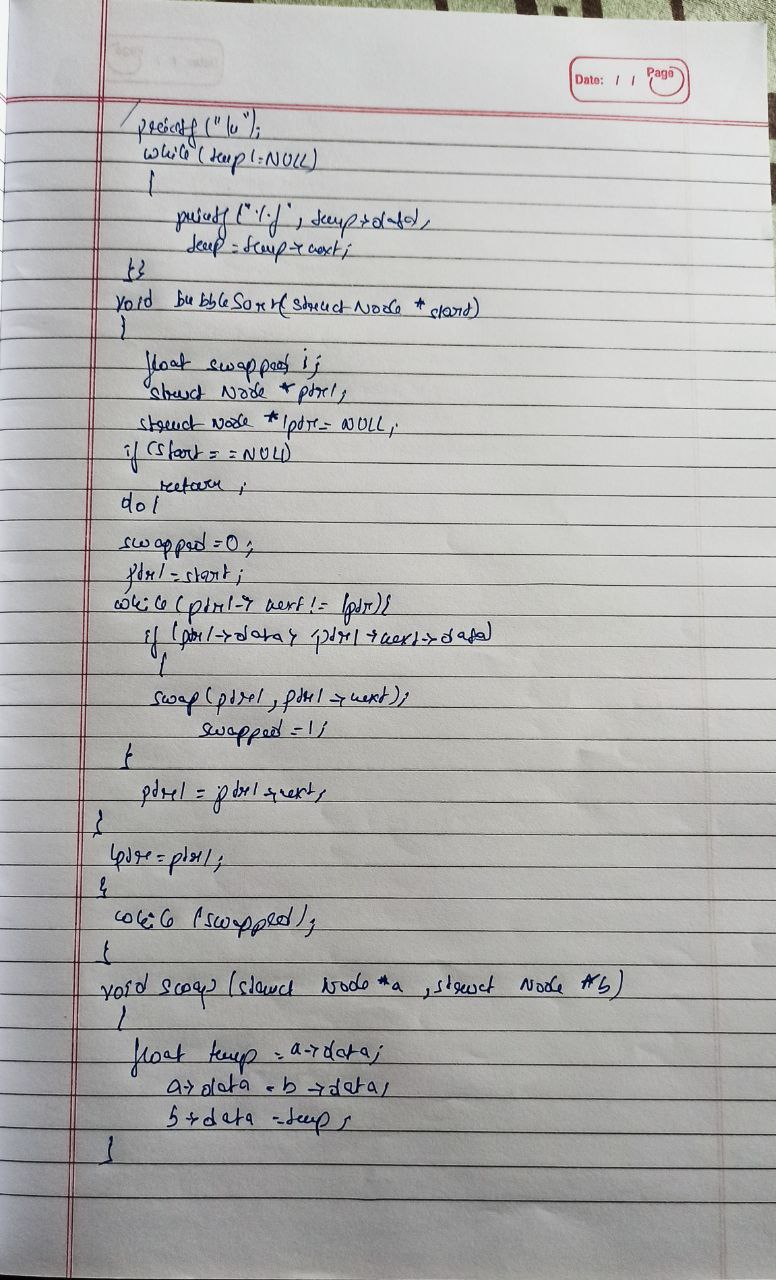 Date: / / Page
printf("\n");
while(temp!=NULL)
{
printf("%f", temp→data);
temp=temp→next;
}}
void bubbleSort(struct Node *start)
{
float swapped, i;
struct Node *ptr1;
struct Node *lptr=NULL;
if (start==NULL)
return;
do{
swapped=0;
ptr1=start;
while(ptr1→next!=lptr){
if(ptr1→data> ptr1→next→data)
{
swap(ptr1, ptr1→next);
swapped=1;
}
ptr1 = ptr1→next;
}
lptr=ptr1;
}
while (swapped);
}
void swap(struct Node *a, struct Node *b)
{
float temp = a→data;
a→data = b→data;
b→data = temp;
}